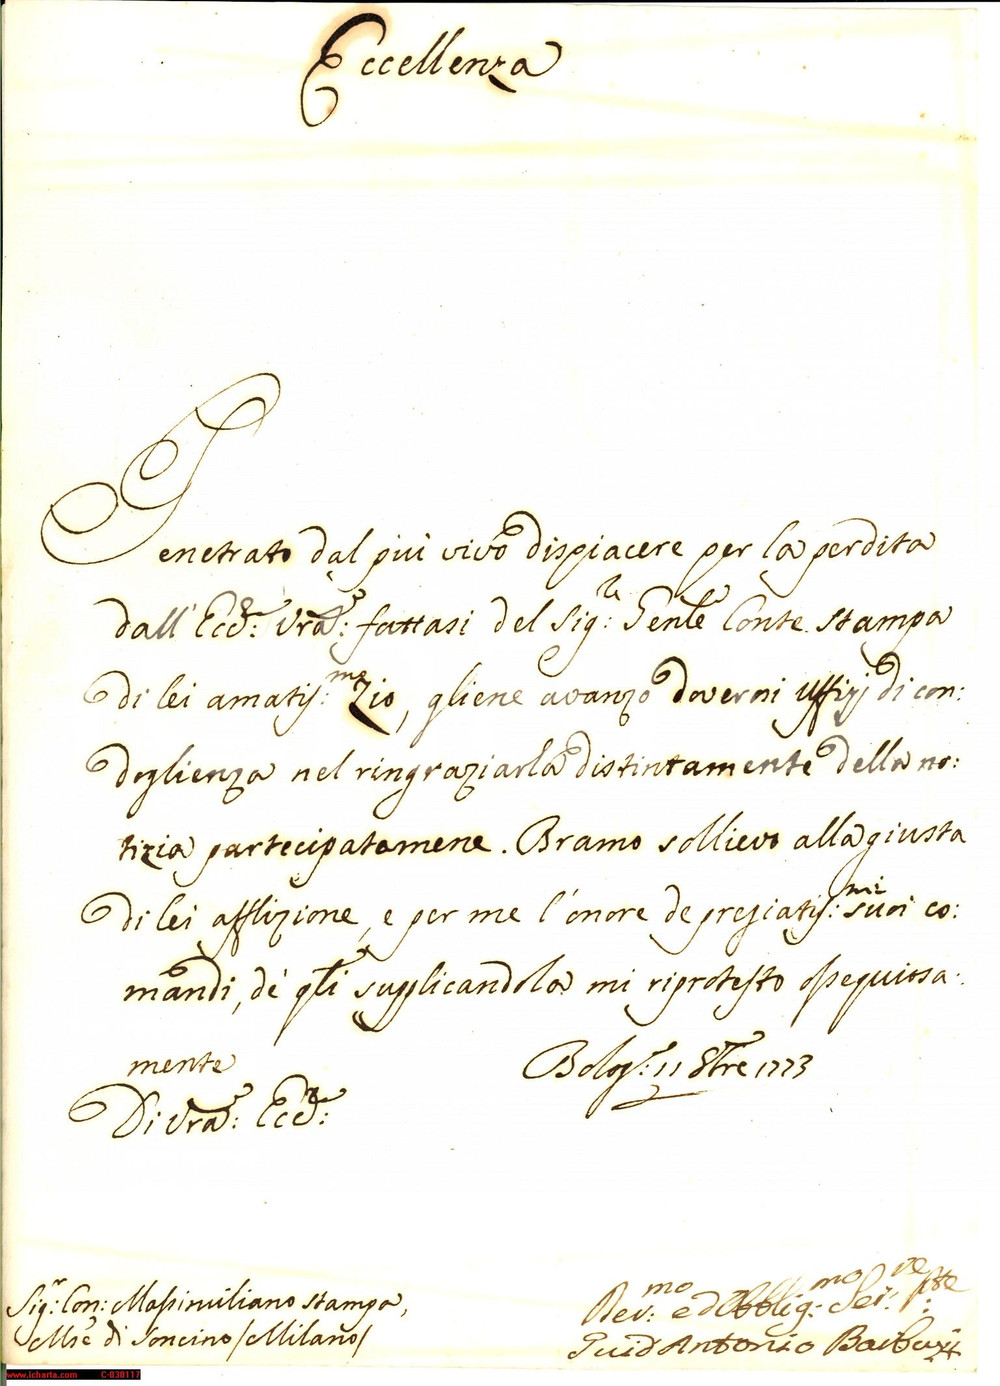 Eccellenza
Penetrato dal più vivo dispiacere per la perdita
dall' Ecc.ª: Vrã: fattasi del Sig:r Genle Conte Stampa
di lei amatiss:mo Zio, gliene avanzo doverosi uffizj di con:
doglienza nel ringraziarla distintamente della no:
tizia partecipatamene. Bramo sollievo alla giusta
di lei afflizione, e per me l'onore de pregiatiss:mi suoi co:
mandi, de' qli supplicandola mi riprotesto ossequiosa:
mente
Bolog:ª 11 8bre 1773
Di Vrã: Ecc.ª:
Sig:r Con: Massimiliano Stampa,
Mse di Soncino /Milano/
Dev:mo ed Obblig:mo Ser:ve
Guid'Antonio Barbazzi
www.icharta.com C-030117